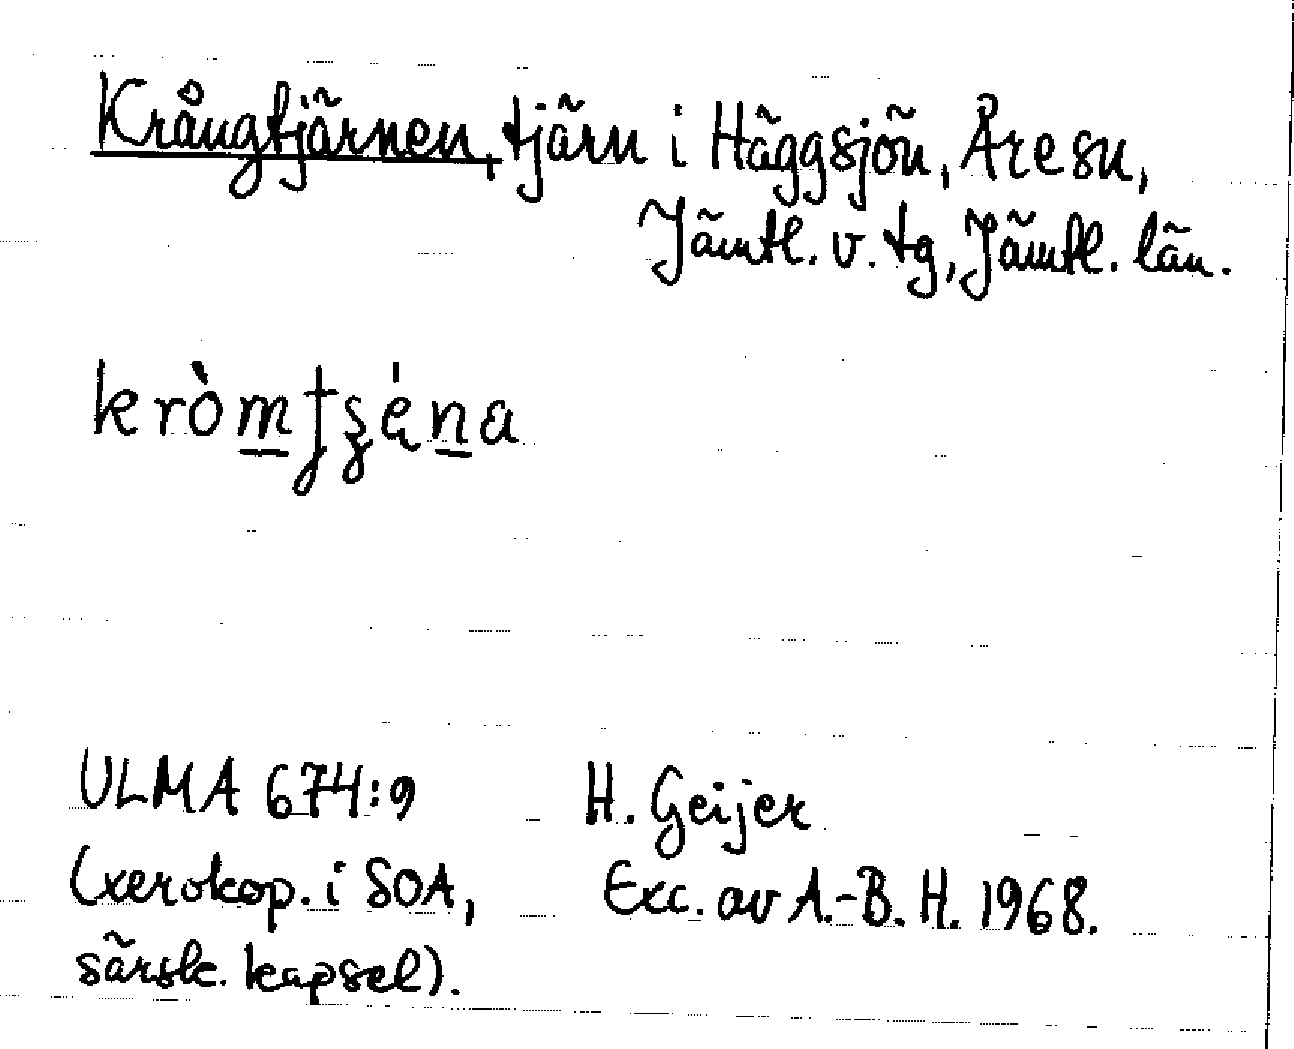 Krångtjärnen, tjärn i Häggsjön, Åre sn,
Jämtl. v. tg, Jämtl. län.
kròm̲tʂę́n̲a
ULMA 674:9 H. Geijer
(xerokop. i SOA, Exc. av A.-B. H. 1968.
särsk. kapsel).